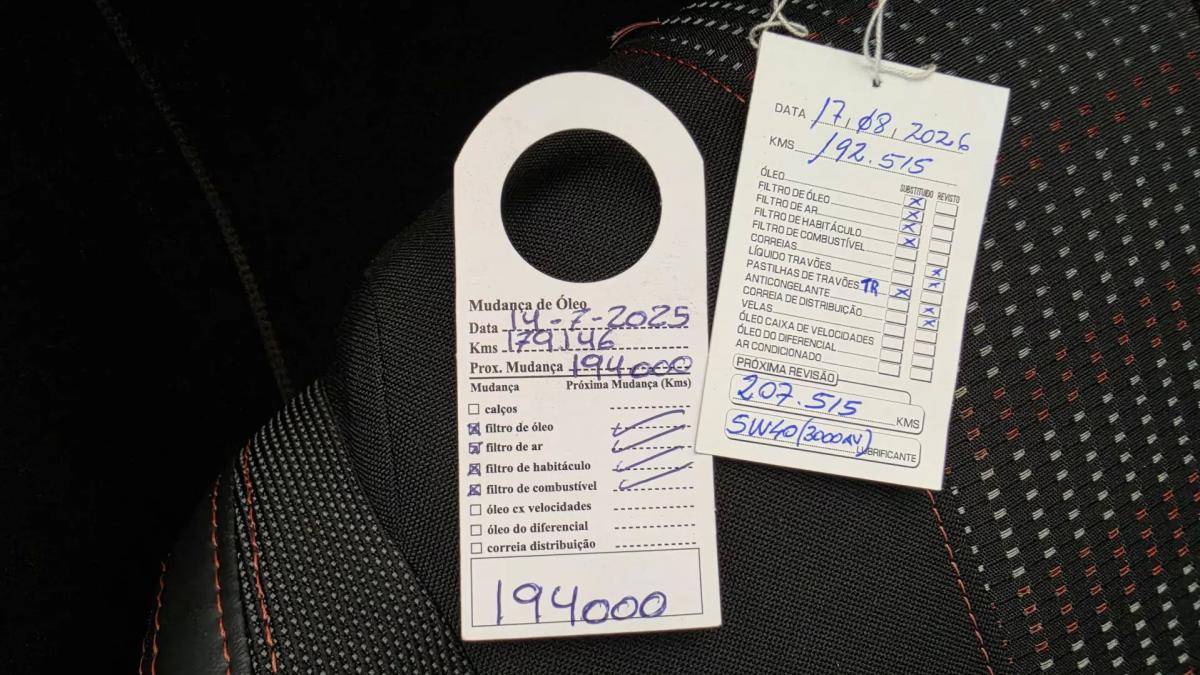 Mudança de Óleo
Data 14-7-2025
Kms 179146
Prox. Mudança 194000
Mudança Próxima Mudança (Kms)
calços
filtro de óleo
filtro de ar
filtro de habitáculo
filtro de combustível
óleo cx velocidades
óleo do diferencial
correia distribuição
194000
DATA 17, 08, 2026
KMS 192.515
SUBSTITUIDO REVISTO
ÓLEO
FILTRO DE ÓLEO
FILTRO DE AR
FILTRO DE HABITÁCULO
FILTRO DE COMBUSTÍVEL
CORREIAS
LÍQUIDO TRAVÕES
PASTILHAS DE TRAVÕES TR
ANTICONGELANTE
CORREIA DE DISTRIBUIÇÃO
VELAS
ÓLEO CAIXA DE VELOCIDADES
ÓLEO DO DIFERENCIAL
AR CONDICIONADO
PRÓXIMA REVISÃO
207.515 KMS
5W40 LUBRIFICANTE